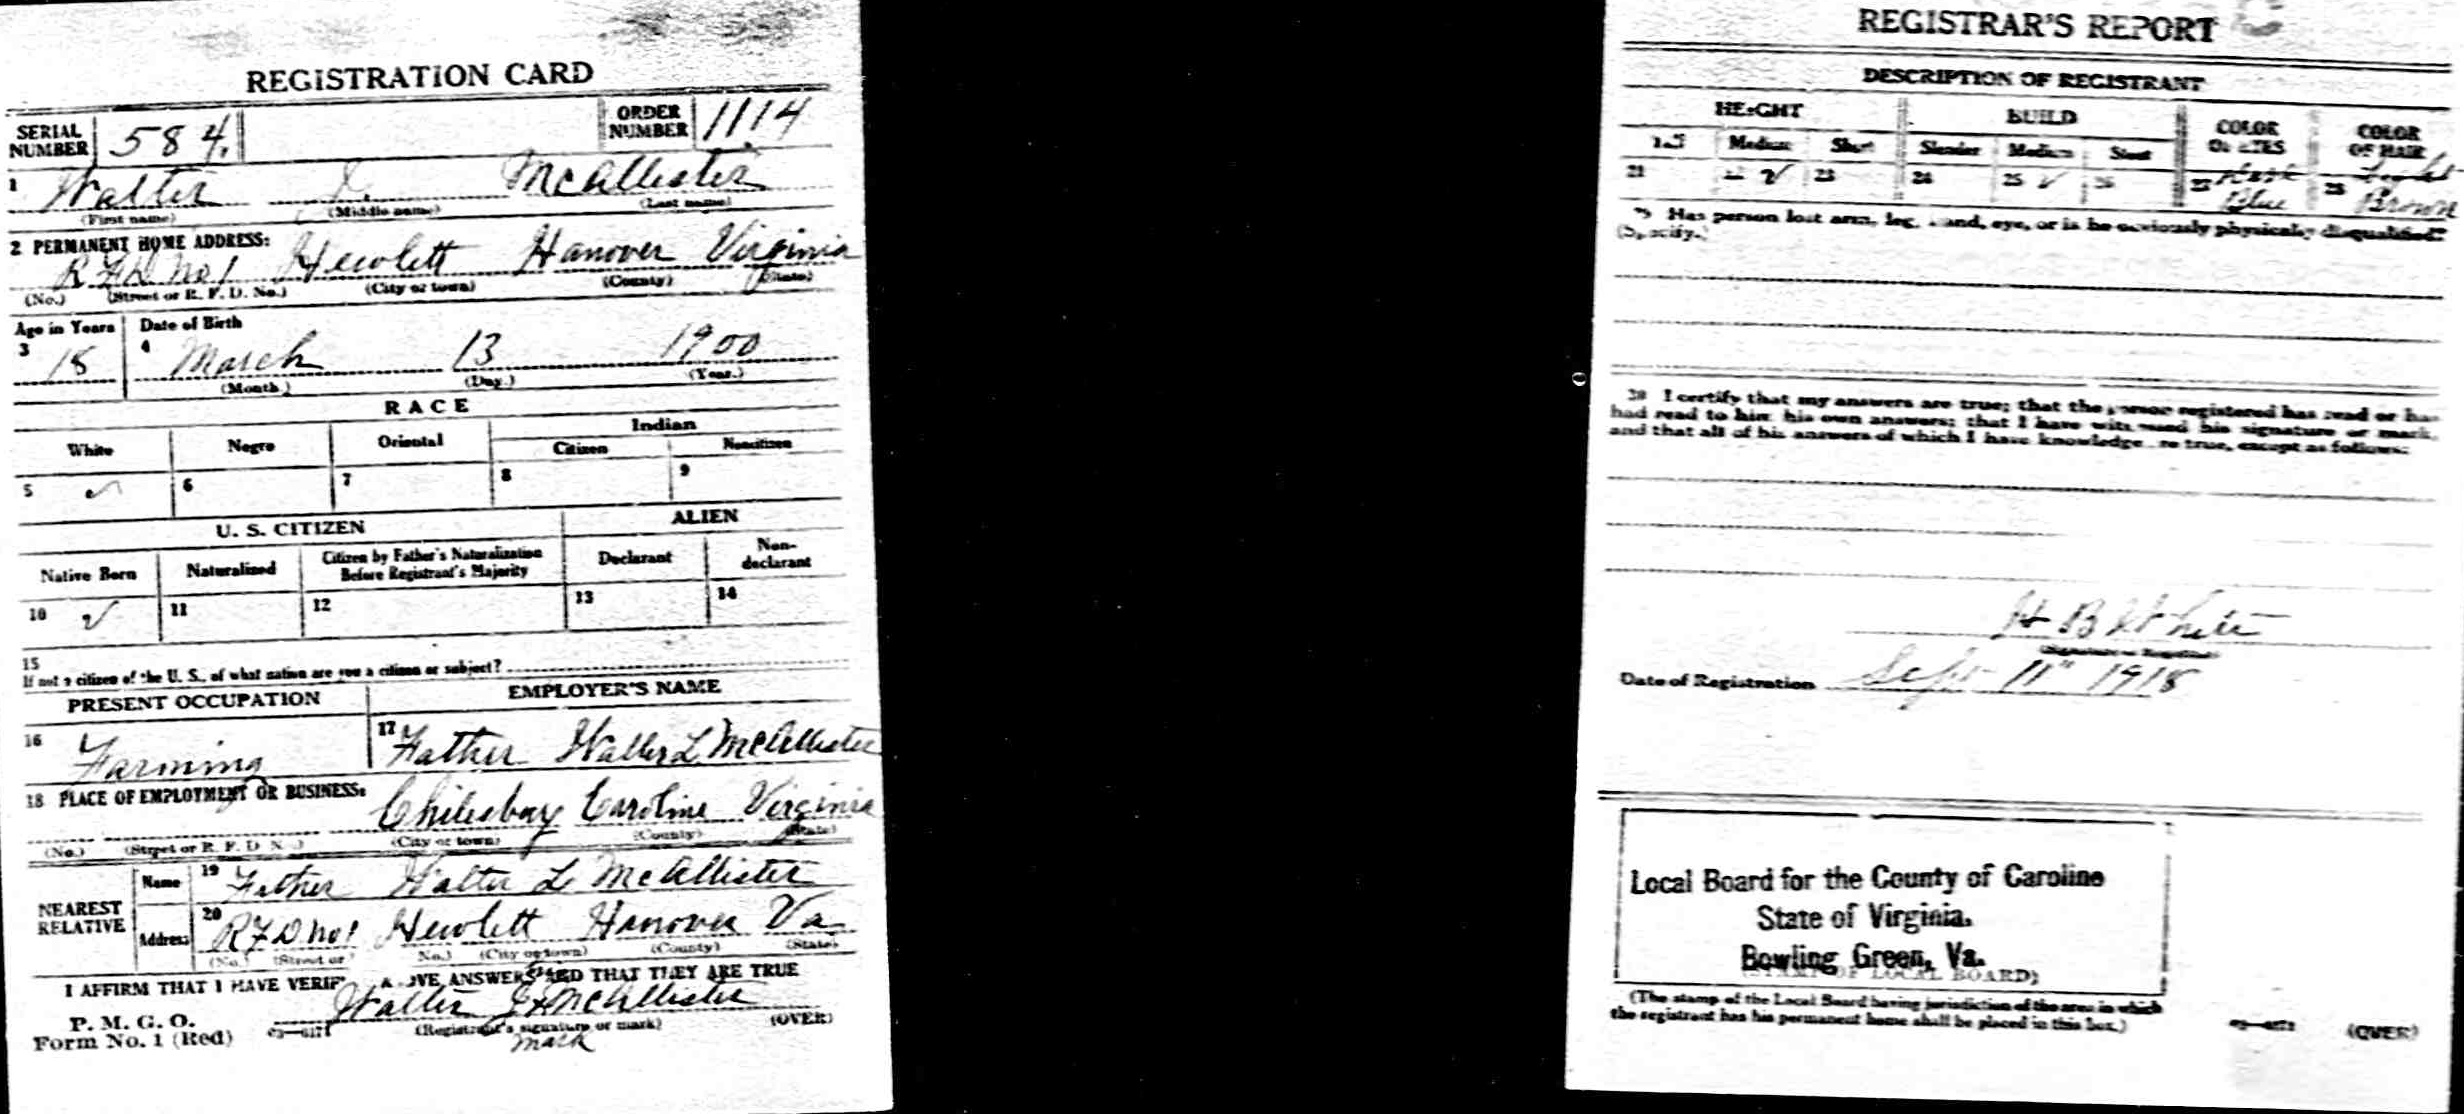 REGISTRATION CARD
SERIAL NUMBER 584. ORDER NUMBER 1114
1 Walter J. McAllister
(First name) (Middle name) (Last name)
2 PERMANENT HOME ADDRESS:
R F D No 1 Hewlett Hanover Virginia
(No.) (Street or R. F. D. No.) (City or town) (County) (State)
Age in Years Date of Birth
3 18 4 March 13 1900
(Month) (Day) (Year)
RACE
White Negro Oriental Indian
Citizen Noncitizen
5 ✓ 6 7 8 9
U. S. CITIZEN ALIEN
Native Born Naturalized Citizen by Father's Naturalization Before Registrant's Majority Declarant Non-declarant
10 ✓ 11 12 13 14
15
If not a citizen of the U. S., of what nation are you a citizen or subject?
PRESENT OCCUPATION EMPLOYER'S NAME
16 Farming 17 Father Walter L McAllister
18 PLACE OF EMPLOYMENT OR BUSINESS:
Caroline Virginia
(No.) (Street or R. F. D. No.) (City or town) (County) (State)
NEAREST RELATIVE
Name 19 Father Walter L McAllister
Address 20 R F D No 1 Hewlett Hanover Va
(No.) (Street or No.) (City or town) (County) (State)
I AFFIRM THAT I HAVE VERIF ANSWERS AND THAT THEY ARE TRUE
P. M. G. O.
Form No. 1 (Red)
Walter J x McAllister
(Registrant's signature or mark) (OVER)
mark
REGISTRAR'S REPORT
DESCRIPTION OF REGISTRANT
HEIGHT BUILD COLOR OF EYES COLOR OF HAIR
Medium Short Slender Medium Stout
21 22 ✓ 23 24 25 ✓ 26 27 Blue 28 Brown
Has person lost arm, leg, hand, eye, or is he obviously physically disqualified?
(Specify.)
30 I certify that my answers are true; that the person registered has read or has
had read to him his own answers; that I have witnessed his signature or mark,
and that all of his answers of which I have knowledge are true, except as follows:
H B White
Date of Registration Sept 11" 1918
Local Board for the County of Caroline
State of Virginia.
Bowling Green, Va.
(STAMP OF LOCAL BOARD)
(The stamp of the Local Board having jurisdiction of the area in which
the registrant has his permanent home shall be placed in this box.)
(OVER)